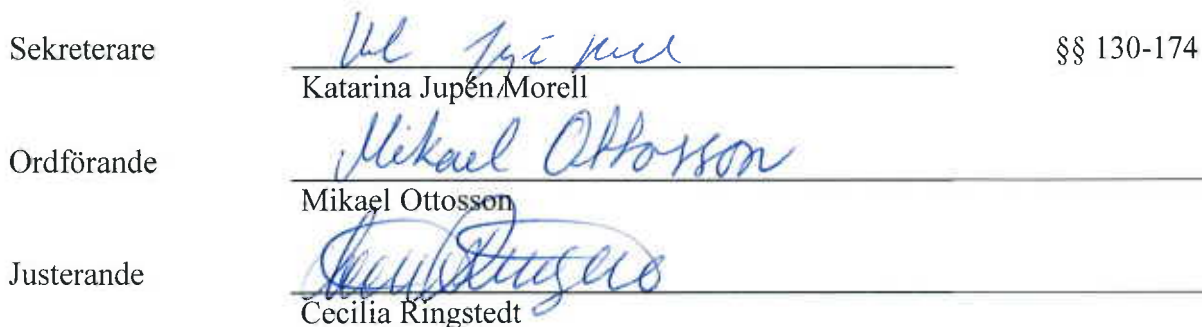 Sekreterare §§ 130-174
Katarina Jupén Morell
Mikael Ottosson
Ordförande
Mikael Ottosson
Justerande
Cecilia Ringstedt